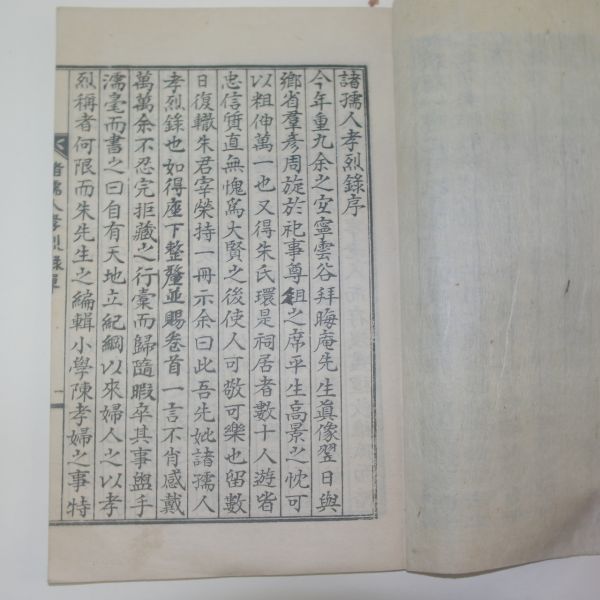 諸孺人孝烈錄序
今年重九余之安寧雲谷拜晦庵先生眞像翌日與
鄉省羣彥周旋於祀事尊俎之席平生高景之忱可
以粗伸萬一也又得朱氏環是祠居者數十人遊皆
忠信質直無愧爲大賢之後使人可敬可樂也留數
日復轍朱君宰榮持一冊示余曰此吾先妣諸孺人
孝烈錄也如得座下整釐並賜卷首一言不肖感戴
萬萬余不忍完拒藏之行槖而歸隨暇卒其事盥手
濡毫而書之曰自有天地立紀綱以來婦人之以孝
烈稱者何限而朱先生之編輯小學陳孝婦之事特
諸孺人孝烈錄序
一